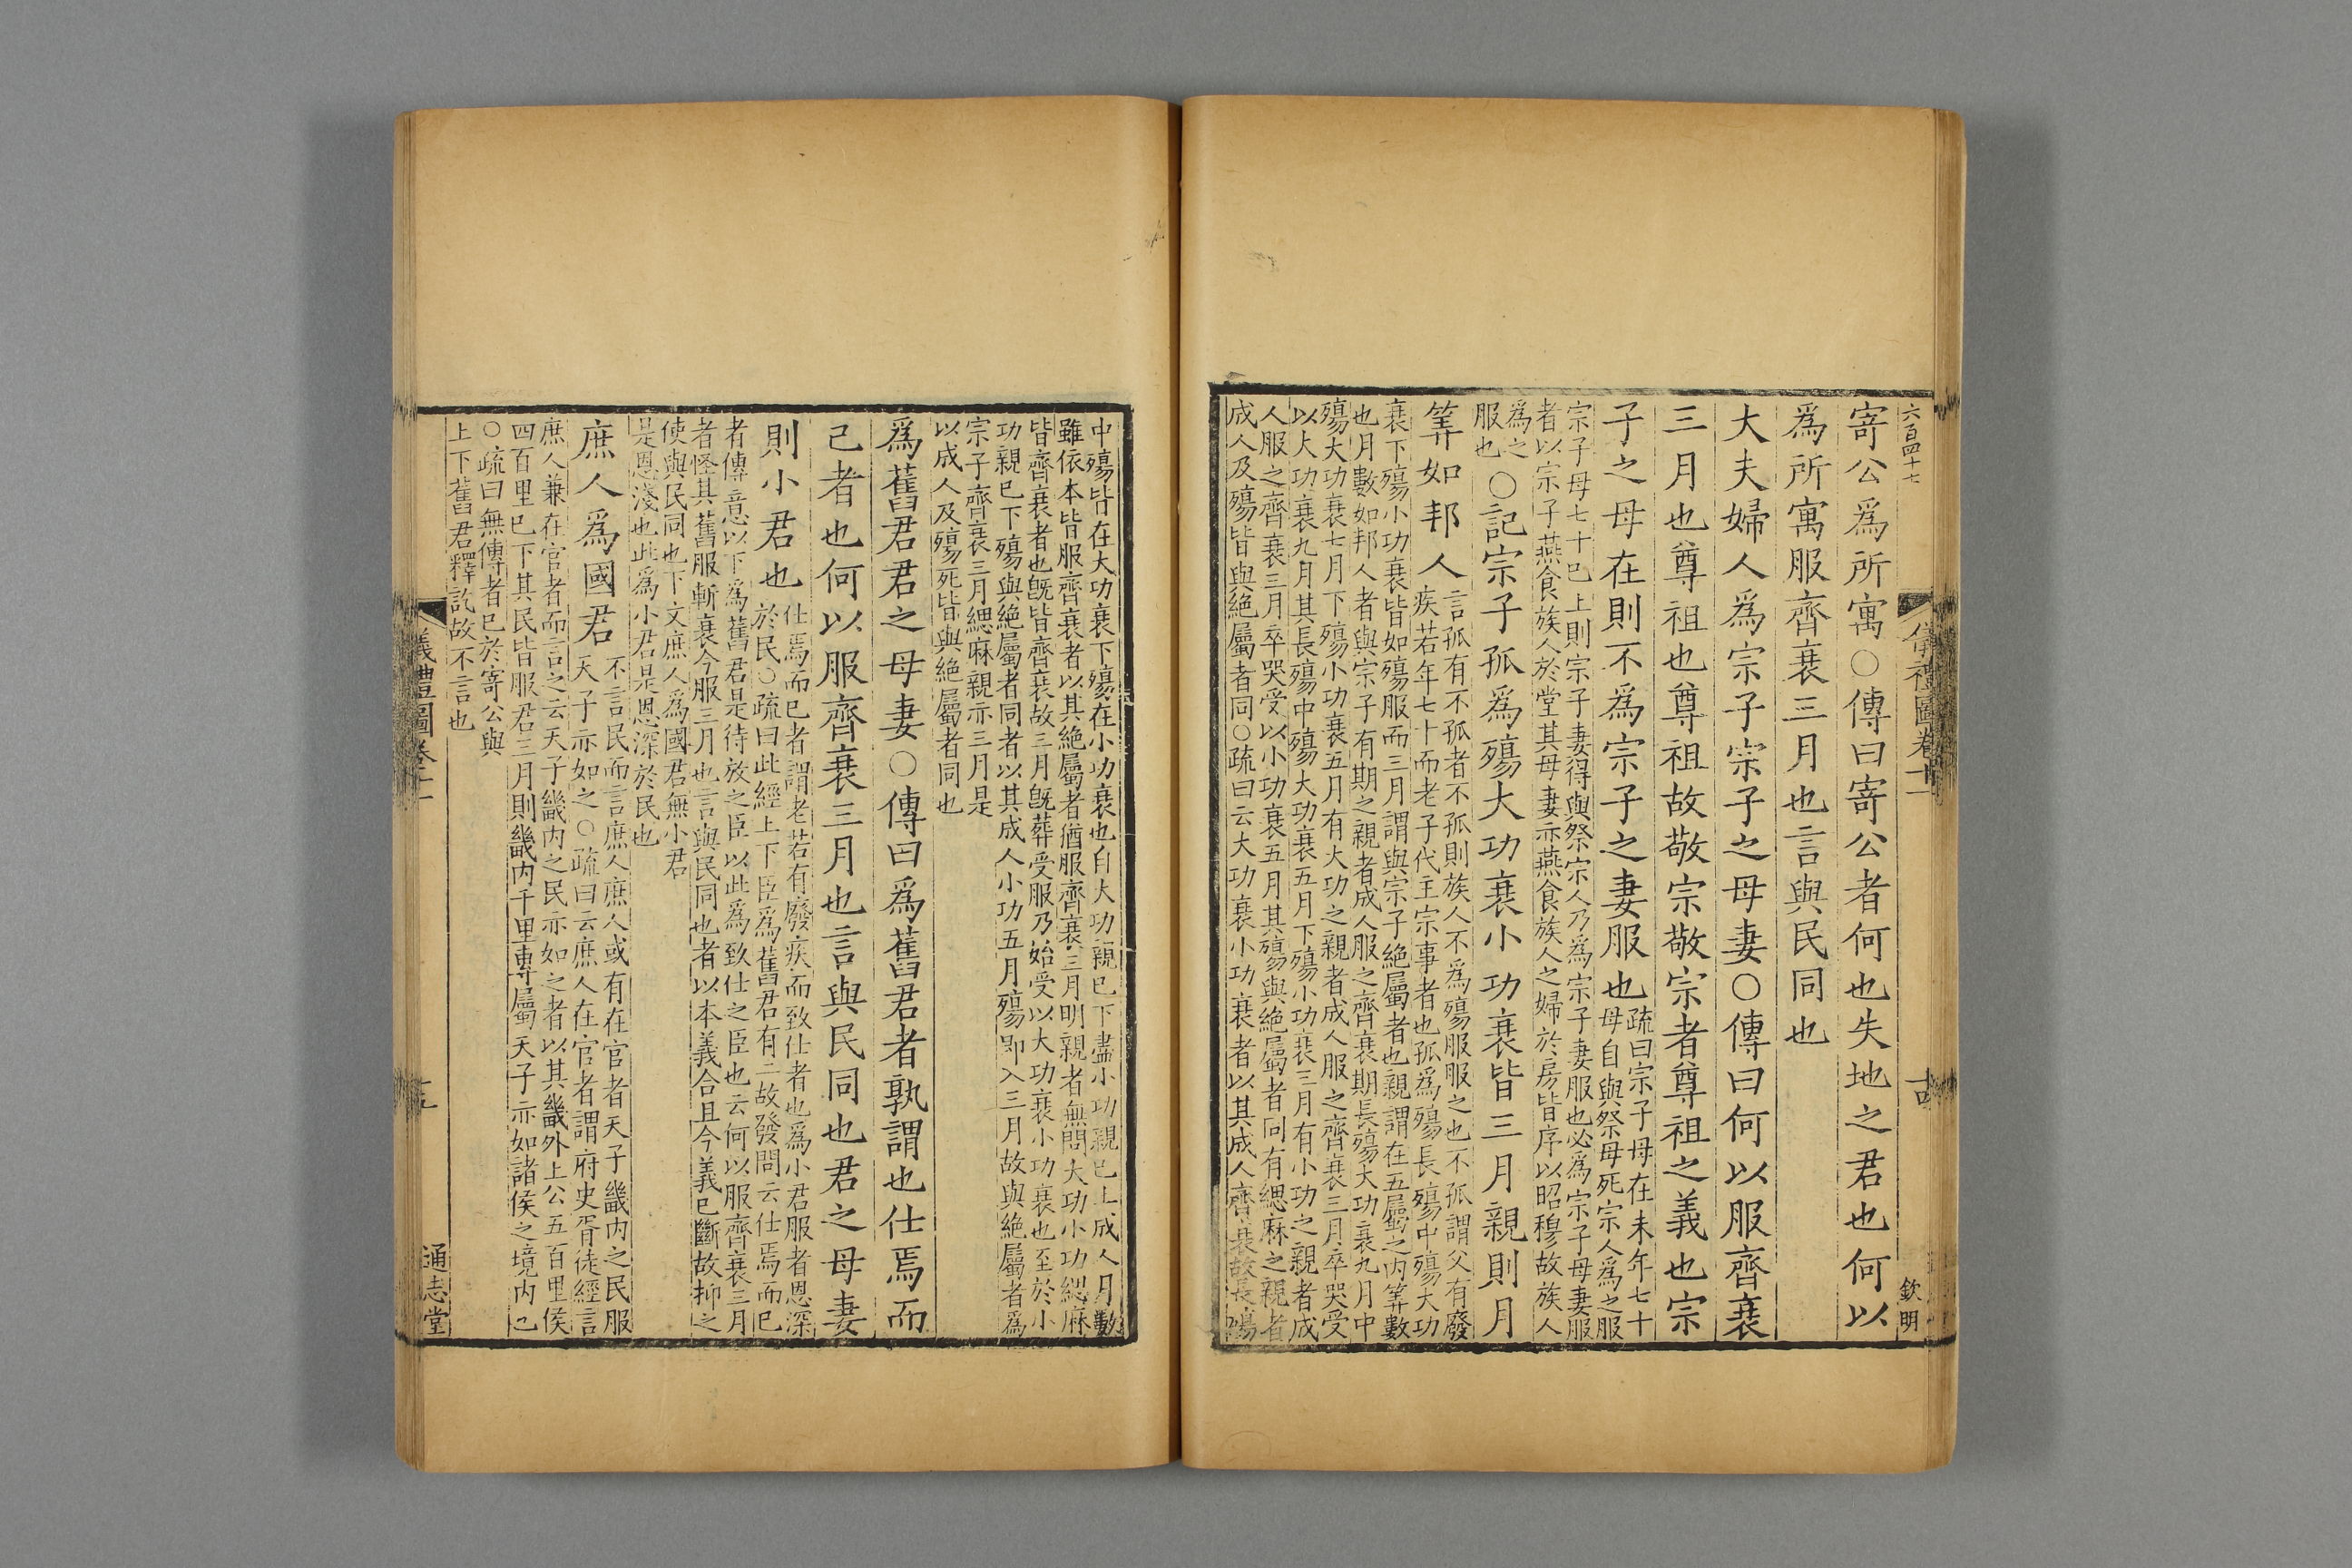 六百四十七
儀禮圖卷十一
十四
欽明
寄公爲所寓○傳曰寄公者何也失地之君也何以
爲所寓服齊衰三月也言與民同也
大夫婦人爲宗子宗子之母妻○傳曰何以服齊衰
三月也尊祖也尊祖故敬宗敬宗者尊祖之義也宗
子之母在則不爲宗子之妻服也
疏曰宗子母在未年七十
母自與祭母死宗人爲之服
宗子母七十已上則宗子妻得與祭宗人乃爲宗子妻服也必爲宗子母妻服
者以宗子燕食族人於堂其母妻亦燕食族人之婦於房皆序以昭穆故族人
爲之
服也
○記宗子孤爲殤大功衰小功衰皆三月親則月
筭如邦人
言孤有不孤者不孤則族人不爲殤服服之也不孤謂父有廢
疾若年七十而老子代主宗事者也孤爲殤長殤中殤大功
衰下殤小功衰皆如殤服而三月謂與宗子絶屬者也親謂在五屬之内筭數
也月數如邦人者與宗子有期之親者成人服之齊衰期長殤大功衰九月中
殤大功衰七月下殤小功衰五月有大功之親者成人服之齊衰三月卒哭受
以大功衰九月其長殤中殤大功衰五月下殤小功衰三月有小功之親者成
人服之齊衰三月卒哭受以小功衰五月其殤與絶屬者同有緦麻之親者
成人及殤皆與絶屬者同○疏曰云大功衰小功衰者以其成人齊衰故長殤
中殤皆在大功衰下殤在小功衰也自大功親已下盡小功親已上成人月數
雖依本皆服齊衰者以其絶屬者猶服齊衰三月明親者無問大功小功緦麻
皆齊衰者也旣皆齊衰故三月旣葬受服乃始受以大功衰小功衰也至於小
功親已下殤與絶屬者同者以其成人小功五月殤即入三月故與絶屬者爲
宗子齊衰三月緦麻親亦三月是
以成人及殤死皆與絶屬者同也
爲舊君君之母妻○傳曰爲舊君者孰謂也仕焉而
已者也何以服齊衰三月也言與民同也君之母妻
則小君也
仕焉而已者謂老若有廢疾而致仕者也爲小君服者恩深
於民○疏曰此經上下臣爲舊君有二故發問云仕焉而已
者傳意以下爲舊君是待放之臣以此爲致仕之臣也云何以服齊衰三月
者怪其舊服斬衰今服三月也言與民同也者以本義合且今義已斷故抑之
使與民同也下文庶人爲國君無小君
是恩淺也此爲小君是恩深於民也
庶人爲國君
不言民而言庶人庶人或有在官者天子畿内之民服
天子亦如之○疏曰云庶人在官者謂府史胥徒經言
庶人兼在官者而言之云天子畿内之民亦如之者以其畿外上公五百里侯
四百里已下其民皆服君三月則畿内千里專屬天子亦如諸侯之境内也
○疏曰無傳者已於寄公與
上下舊君釋訖故不言也
儀禮圖卷十一
十五
通志堂